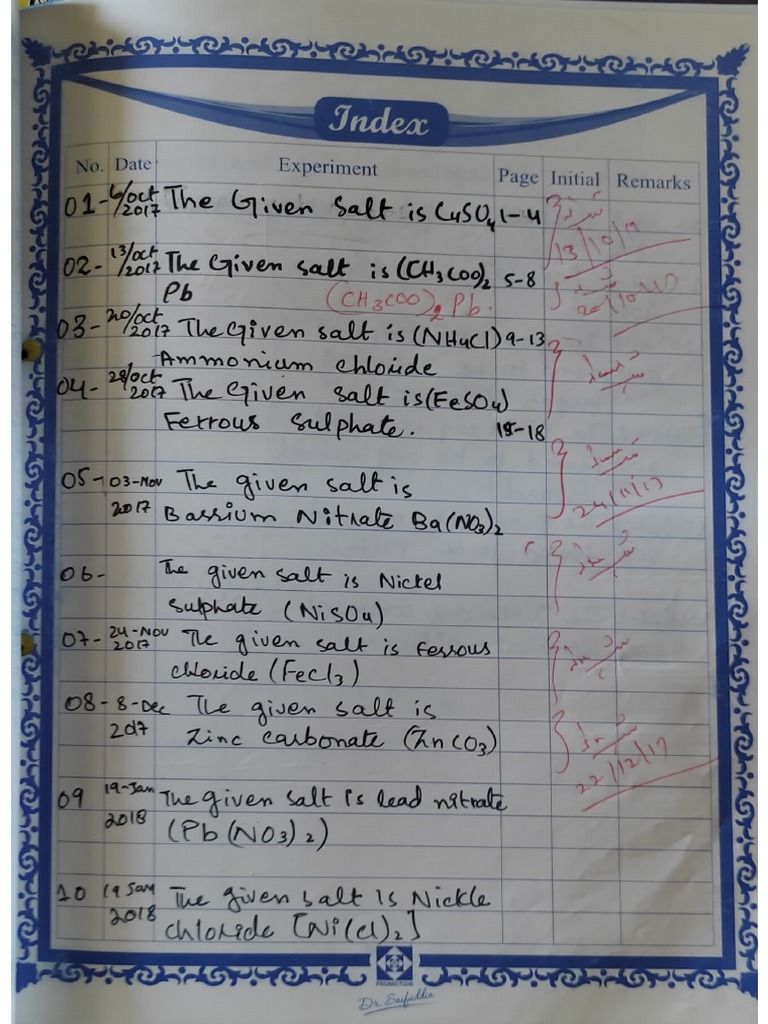 Index
No. Date Experiment Page Initial Remarks
01- 6/oct 2017 The Given Salt is CuSO4 1-4
13/10/17
02- 13/oct 2017 The Given salt is (CH3COO)2 5-8
Pb (CH3COO)2 Pb.
03- 20/oct 2017 The Given salt is (NH4Cl) 9-13
Ammonium chloride
04- 28/oct 2017 The Given salt is (FeSO4)
Ferrous Sulphate. 15-18
05- 03-Nov The given salt is
2017 Bassium Nitrate Ba(NO3)2
24/11/17
06- The given salt is Nickel
sulphate (NiSO4)
07- 24-Nov 2017 The given salt is Ferrous
chloride (FeCl3)
08- 8-Dec The given salt is
2017 Zinc carbonate (ZnCO3)
22/12/17
09 19-Jan The given salt is lead nitrate
2018 (Pb(NO3)2)
10 19 Jan The given salt is Nickle
2018 chloride [Ni(Cl)2]
PROMOTION
Dr. Saifullah